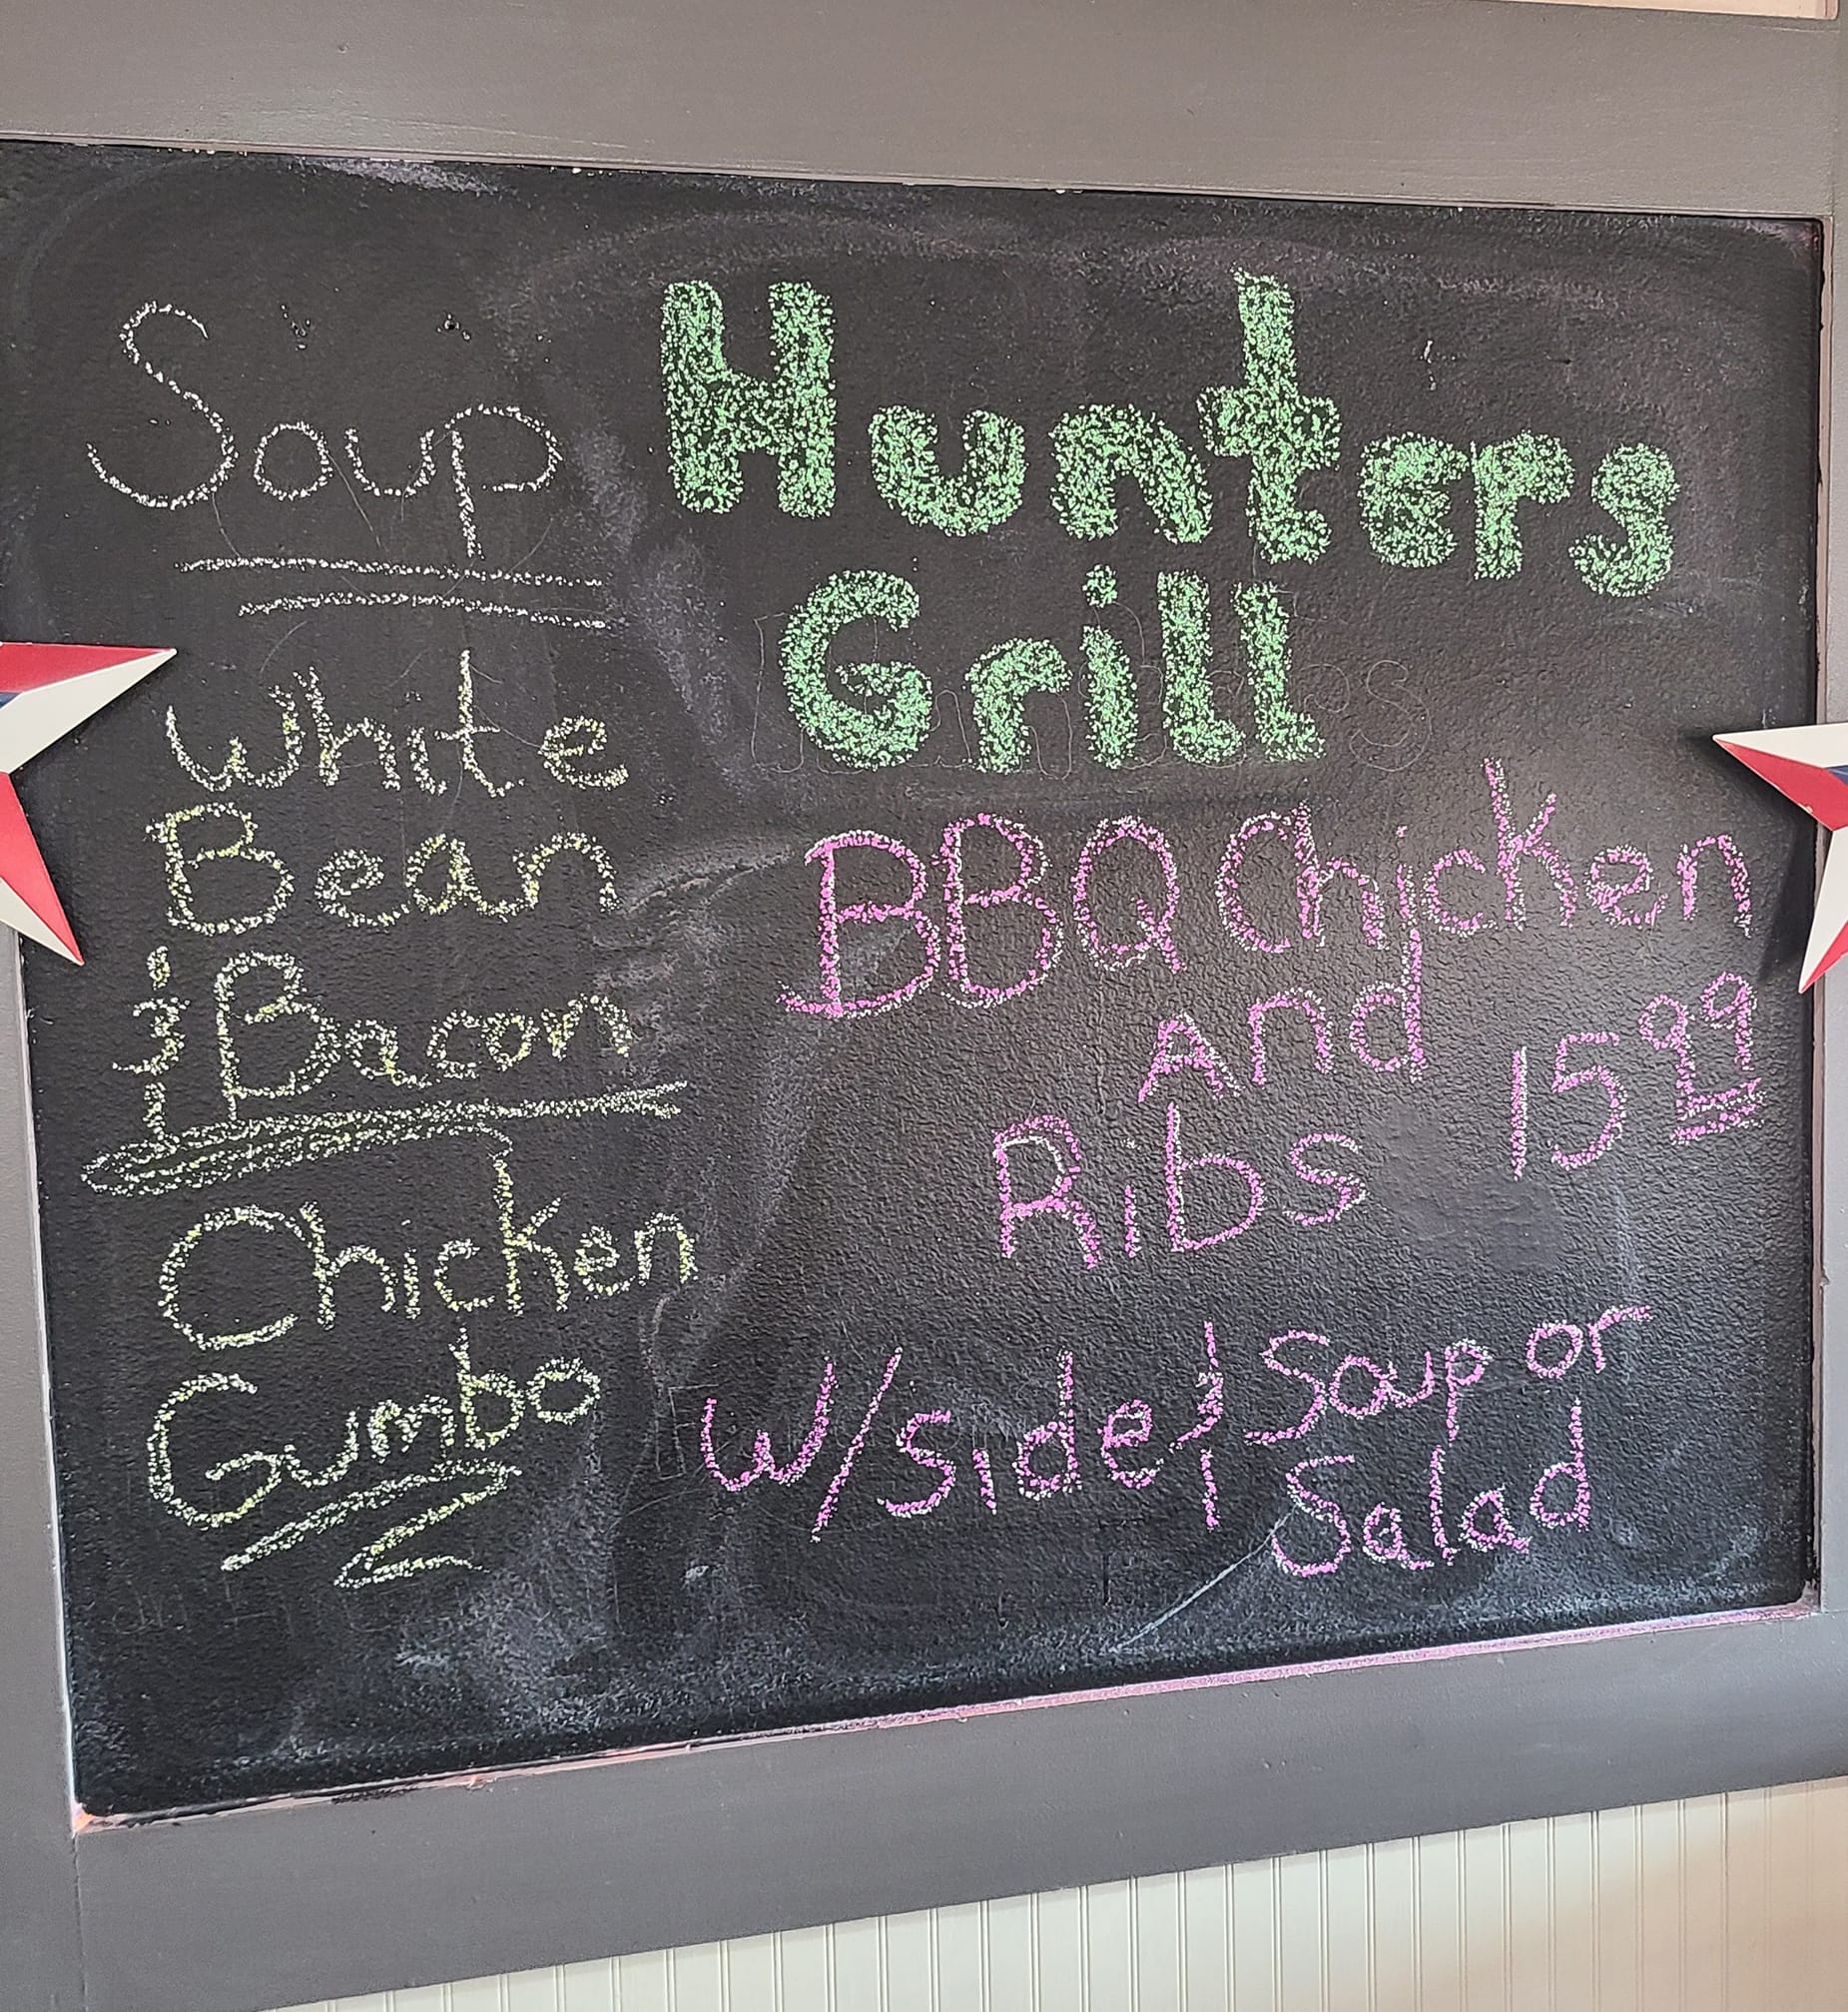 Soup
White
Bean
& Bacon
Chicken
Gumbo
Hunters
Grill
BBQ Chicken
And
Ribs
15 99
w/side & Soup or
Salad